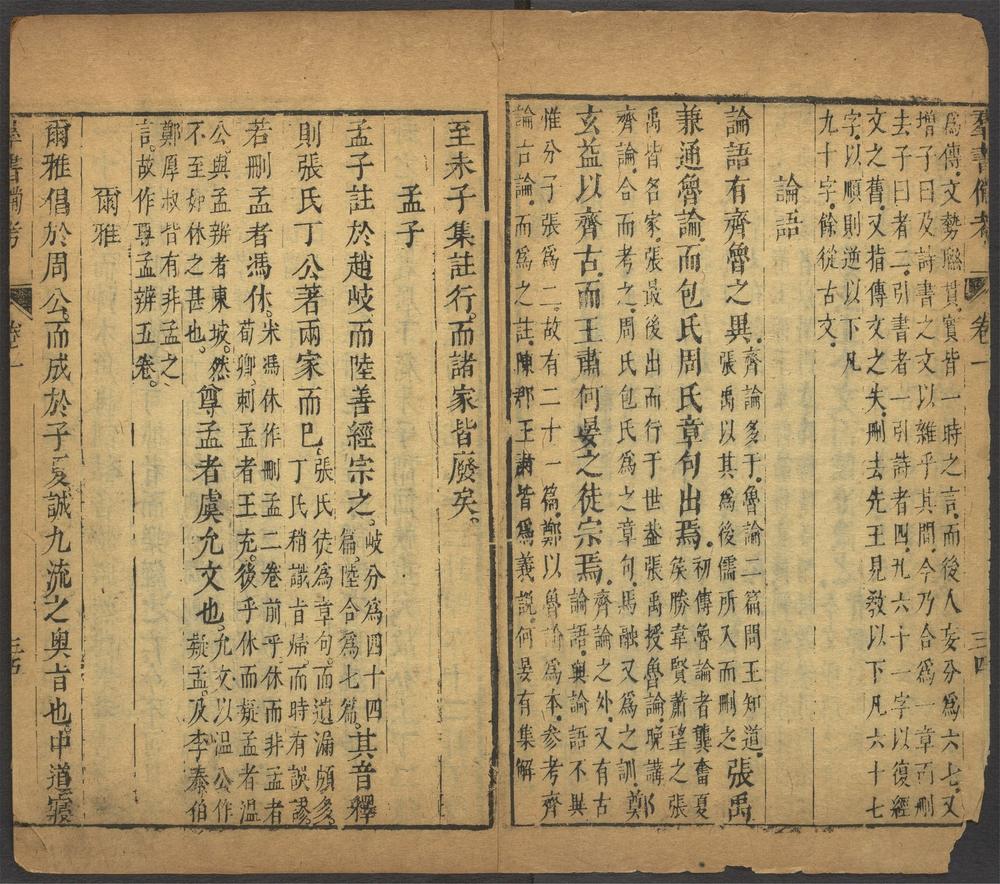 羣書備考 卷一 三四
爲傳文勢聯貫實皆一時之言而後人妄分爲六七又
增子曰及詩書之文以雜乎其間今乃合爲一章而刪
去子曰者二引書者一引詩者四凡六十一字以復經
文之舊又指傳文之失刪去先王見敎以下凡六十七
字以順則逆以下凡
九十字餘從古文
論語
論語有齊魯之異齊論多于魯論二篇問王知道張禹以其爲後儒所入而刪之張禹
兼通魯論而包氏周氏章句出焉初傳魯論者龔奮夏矦勝韋賢蕭望之張
禹皆名家張最後出而行于世葢張禹授魯論晚講
齊論合而考之周氏包氏爲之章句馬融又爲之訓鄭
玄益以齊古而王肅何晏之徒宗焉齊論之外又有古論語與論語不異
惟分子張爲二故有二十一篇鄭以魯論爲本參考齊
論古論而爲之註陳郡王肅皆爲義説何晏有集解
至朱子集註行而諸家皆廢矣
孟子
孟子註於趙岐而陸善經宗之岐分爲四十四篇陸合爲七篇其音釋
則張氏丁公著兩家而已張氏徒爲章句而遺漏頗多丁氏稍識旨歸而時有誤謬
若刪孟者馮休宋馮休作刪孟二卷前乎休而非孟者荀卿刺孟者王充後乎休而疑孟者溫
公與孟辨者東坡然尊孟者虞允文也允文以溫公作疑孟及李泰伯
不至如休之甚也
鄭厚叔皆有非孟之
言故作尊孟辨五卷
爾雅
爾雅倡於周公而成於子夏誠九流之奧旨也中道寖
羣書備考 卷一 三五